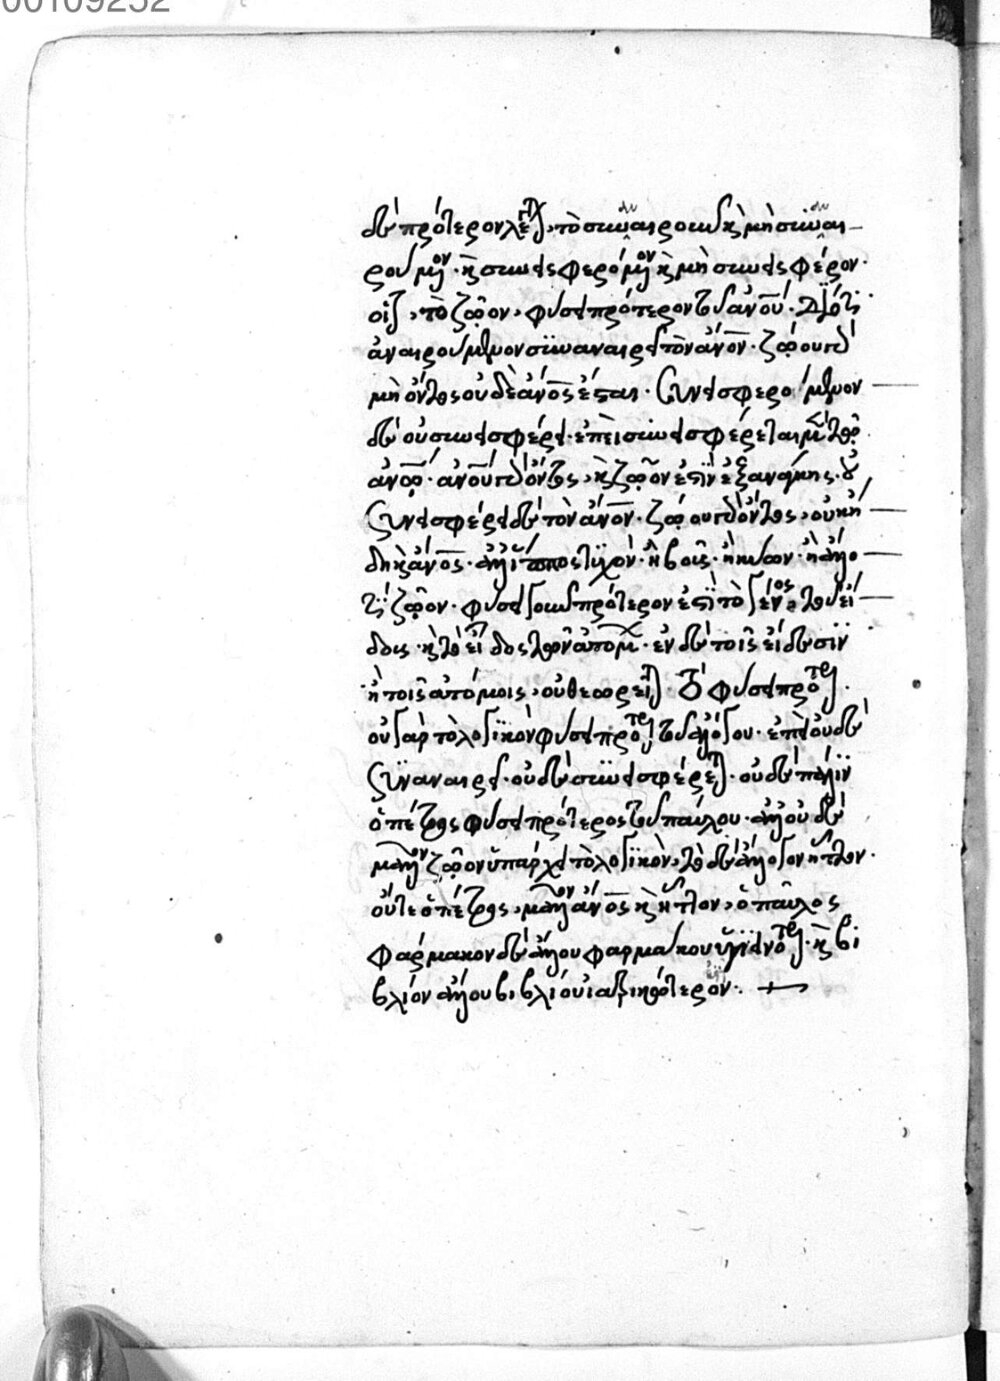 00109252
δὲ πρότερον λέγεται, τὸ συναναιροῦν καὶ μὴ συναναι
ρούμενον· καὶ συνεισφερόμενον καὶ μὴ συνεισφέρον·
οἷον, τὸ ζῶον, φύσει πρότερον τοῦ ἀνου· διότι
ἀναιρούμενον συναναιρεῖ τὸν ἄνον· ζώου γὰρ
μὴ ὄντος οὐδὲ ἄνος ἔσται· συνεισφερόμενον
δὲ οὐ συνεισφέρει· ἐπεὶ συνεισφέρεται μὲν τῷ
ἀνῳ· ἀνου γὰρ ὄντος, καὶ ζῶον ἐστὶν ἐξανάγκης· οὐ
συνεισφέρει δὲ τὸν ἄνον· ζώου γὰρ ὄντος, οὐκ ἤ
δη καὶ ἄνος· ἀλλ' ἵππος τυχὸν· ἢ βοῦς· ἢ κύων· ἢ ἄλλο
τι ζῶον· φύσει οὖν πρότερον ἐστὶ τὸ γένος τοῦ εἴ
δους· καὶ τὸ εἶδος τῶν ἀτόμων· ἐν δὲ τοῖς εἴδεσιν
ἢ τοῖς ἀτόμοις, οὐ θεωρεῖται τὸ φύσει πρότερον·
οὐ γὰρ τὸ λογικὸν φύσει πρότερον τοῦ ἀλόγου· ἐπεὶ οὐδὲ
συναναιρεῖ· οὐδὲ συνεισφέρεται· οὐδὲ πάλιν
ὁ πέτρος φύσει πρότερος τοῦ παύλου· ἀλλ' οὐδὲ
μᾶλλον ζῶον ὑπάρχει τὸ λογικὸν, τὸ δὲ ἄλογον ἧττον·
οὔτε ὁ πέτρος, μᾶλλον ἄνος καὶ ἧττον, ὁ παῦλος
φάρμακον δὲ ἄλλου φαρμάκου ὑγιεινότερον· καὶ βι
βλίον ἄλλου βιβλίου ἰατρικώτερον·